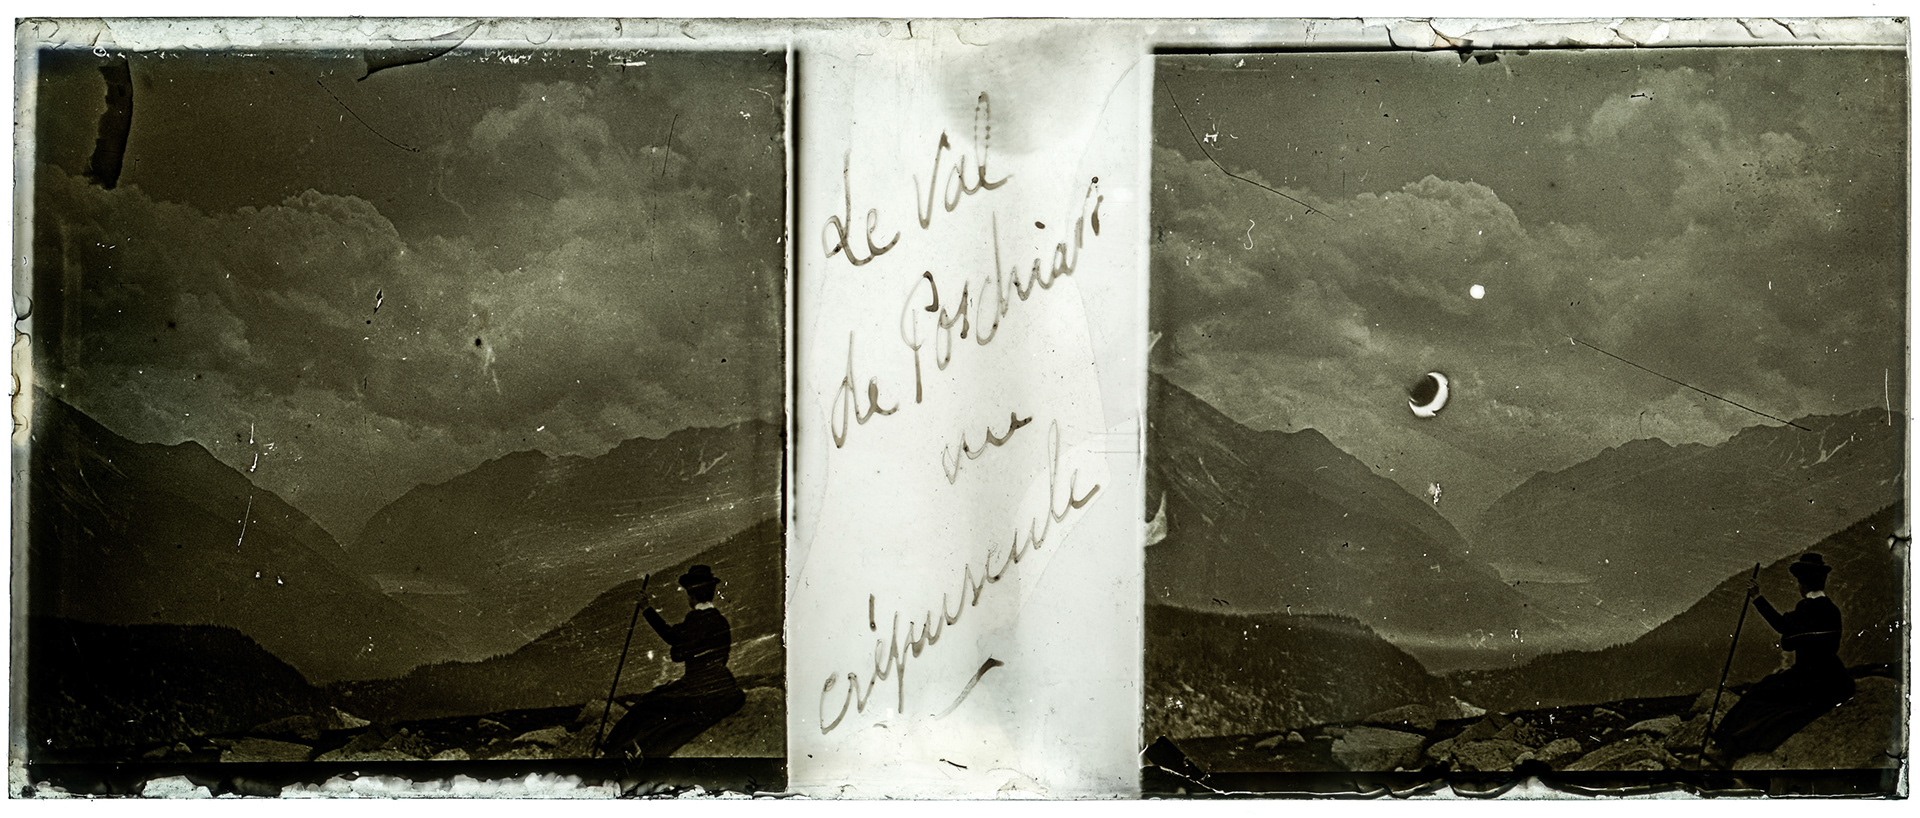 Le Val
de Poschiavo
au
crépuscule